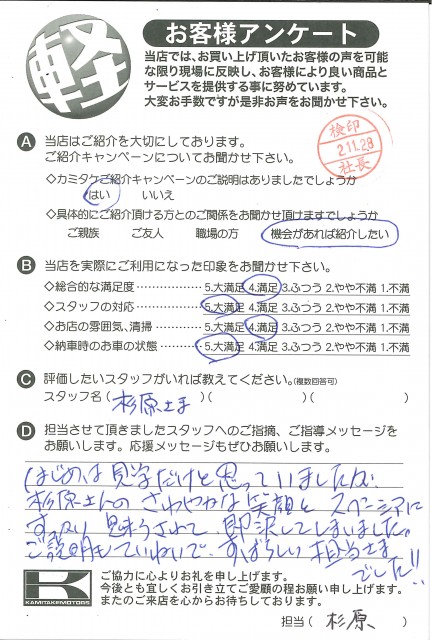 軽
お客様アンケート
当店では、お買い上げ頂いたお客様の声を可能
な限り現場に反映し、お客様により良い商品と
サービスを提供する事に努めています。
大変お手数ですが是非お声をお聞かせ下さい。
検印
2.11.28
社長
A 当店はご紹介を大切にしております。
ご紹介キャンペーンについてお聞かせ下さい。
◇カミタケご紹介キャンペーンのご説明はありましたでしょうか
はい いいえ
◇具体的にご紹介頂ける方とのご関係をお聞かせ頂けますでしょうか
ご親族 ご友人 職場の方 機会があれば紹介したい
B 当店を実際にご利用になった印象をお聞かせ下さい。
◇総合的な満足度 ……………… 5.大満足 4.満足 3.ふつう 2.やや不満 1.不満
◇スタッフの対応 ……………… 5.大満足 4.満足 3.ふつう 2.やや不満 1.不満
◇お店の雰囲気、清掃 ………… 5.大満足 4.満足 3.ふつう 2.やや不満 1.不満
◇納車時のお車の状態 ………… 5.大満足 4.満足 3.ふつう 2.やや不満 1.不満
C 評価したいスタッフがいれば教えてください。(複数回答可)
スタッフ名 ( 杉原さま )( )( )
D 担当させて頂きましたスタッフへのご指摘、ご指導メッセージを
お願いします。応援メッセージもぜひお願いします。
はじめは見学だけと思っていましたが
杉原さんのさわやかな笑顔とスペーシアに
すっかり魅りょうされて、即決してしまいました。
ご説明もていねいで、すばらしい担当さま
でした!!
K
KAMITAKEMOTORS
ご協力に心よりお礼を申し上げます。
今後とも宜しくお引き立てご愛顧の程お願い申し上げます。
またのご来店を心からお待ちしております。
担当 ( 杉原 )